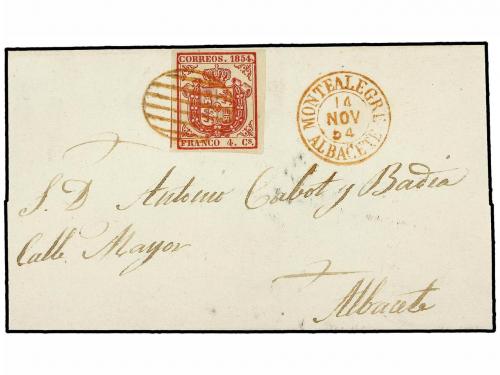 CORREOS. 1854.
FRANCO 4. Cs.
MONTEALEGRE
14
NOV
54
ALBACETE
S. D. Antonio Cabot y Badia
Calle Mayor
Albacete